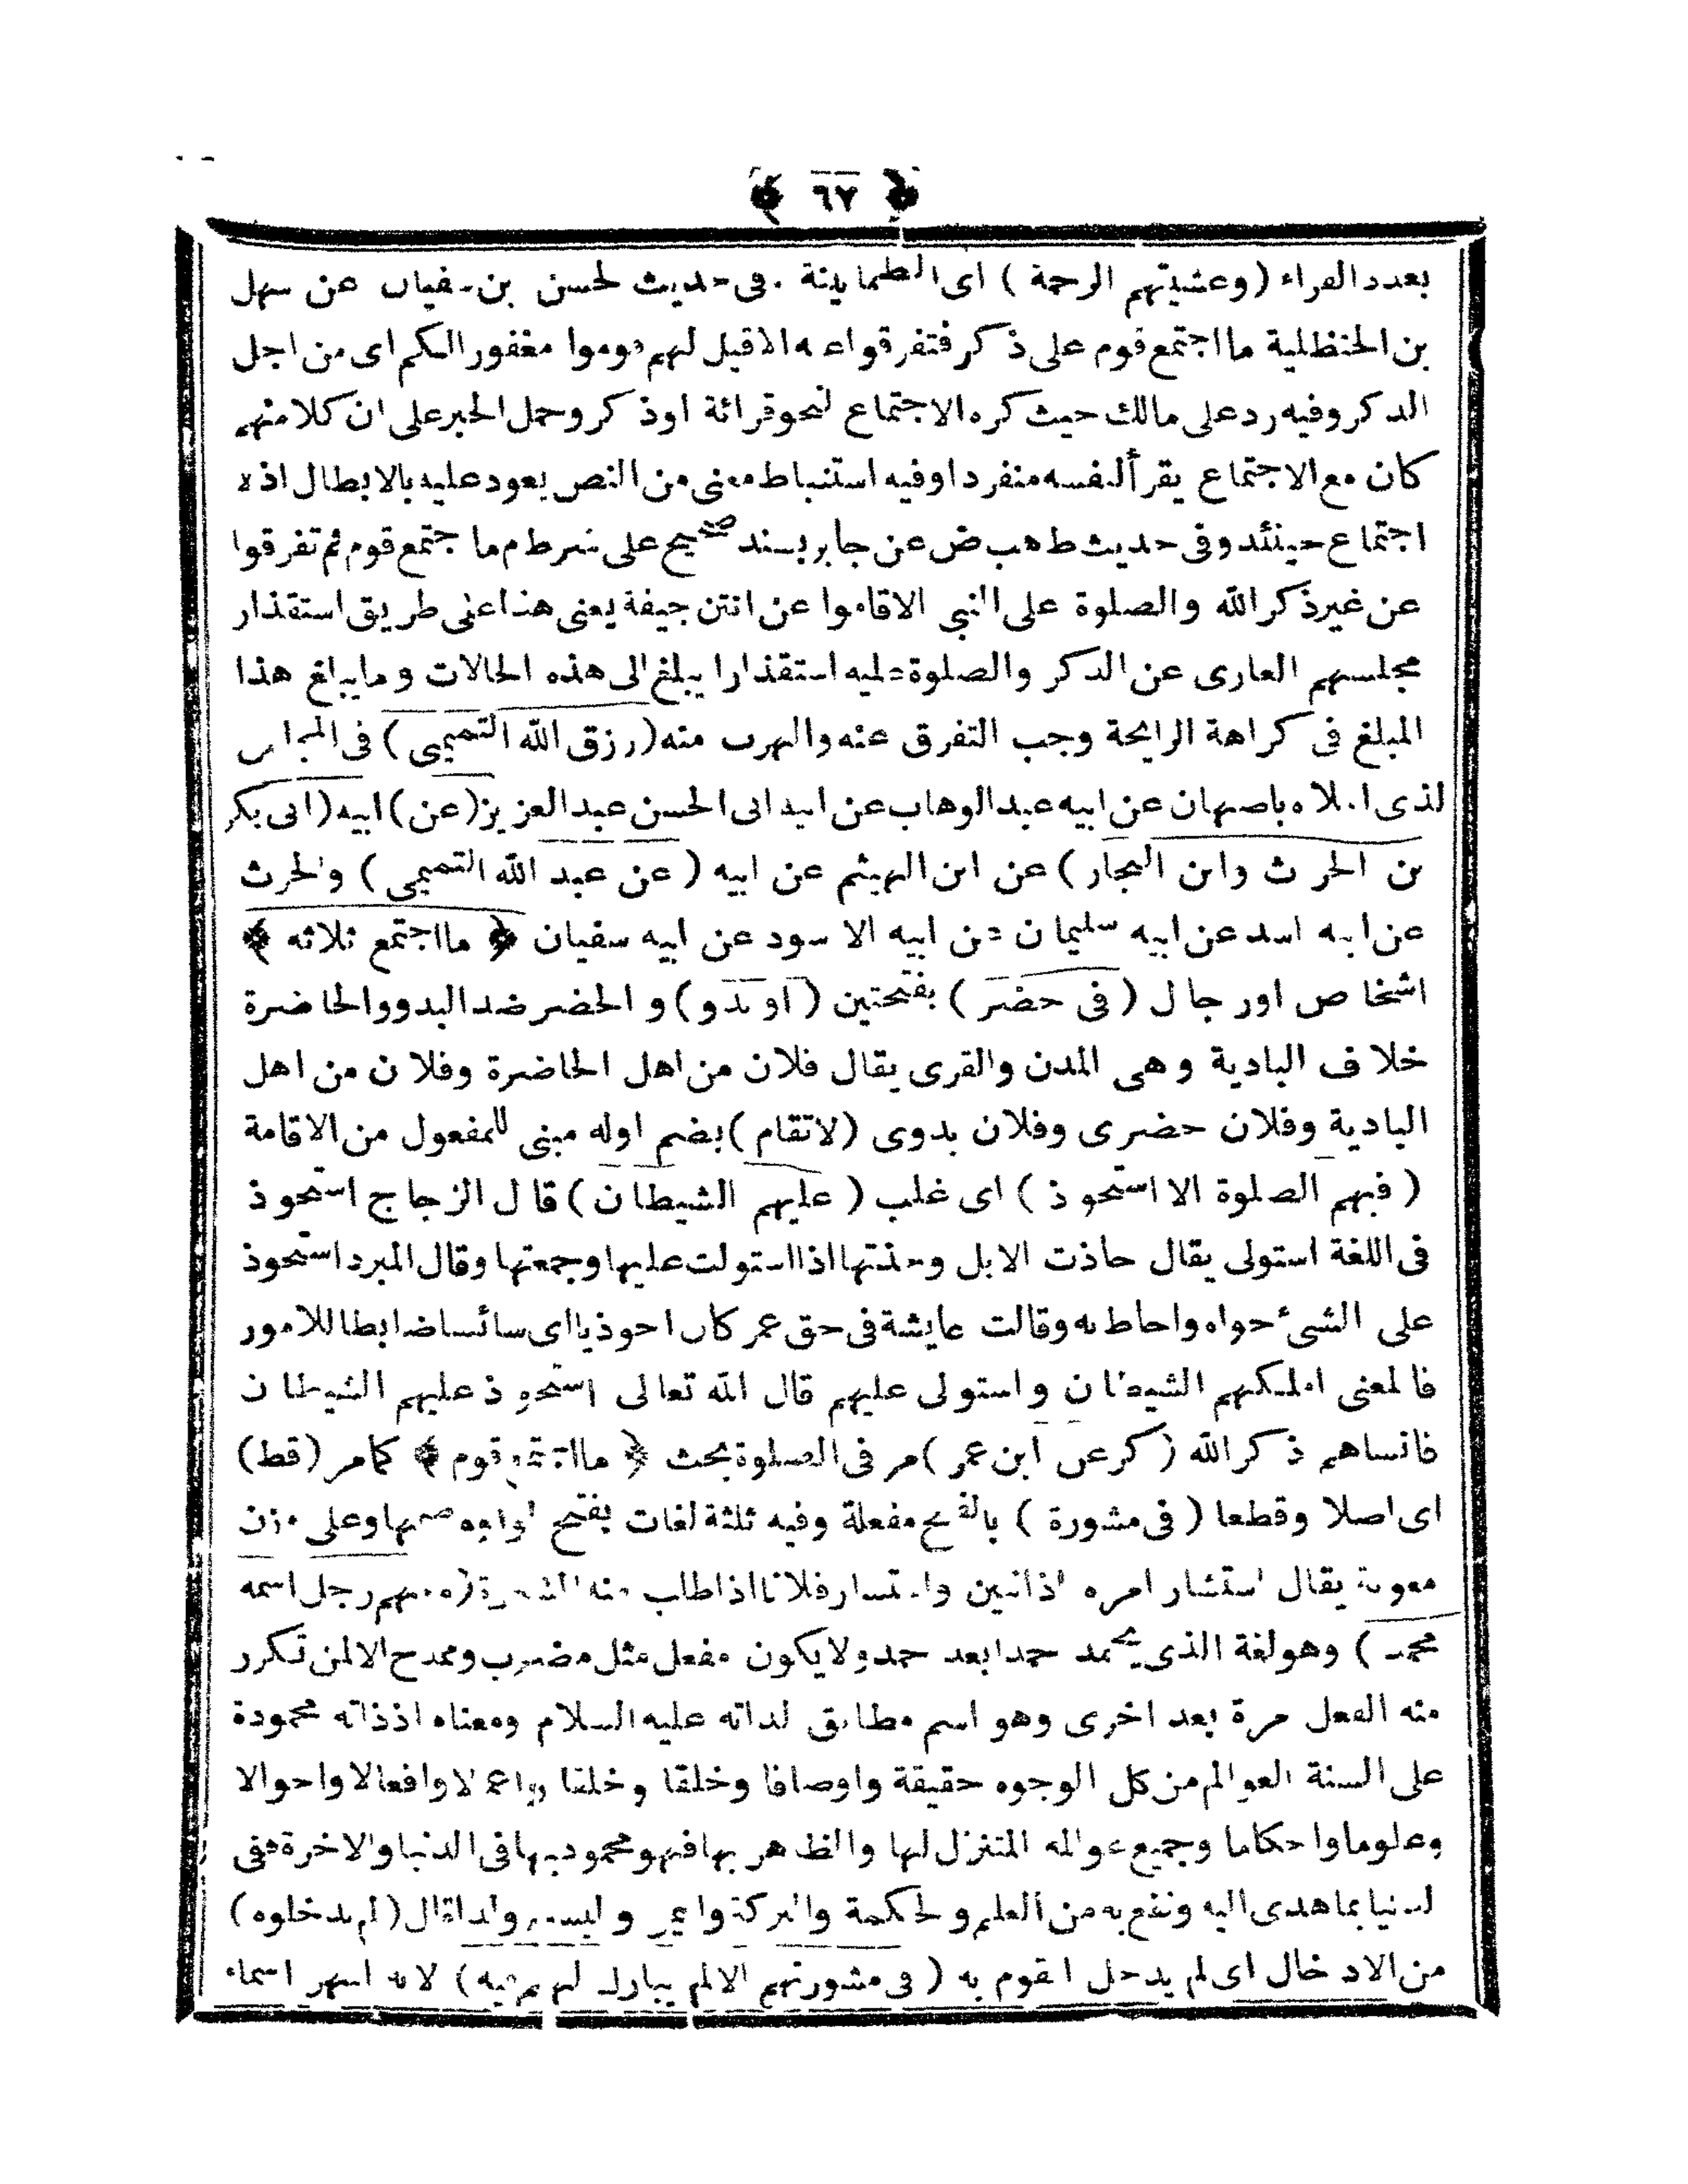 ﴿ ٦٧ ﴾
بعدد القراء (وعشيتهم الرحمة) اى الطمانينة . فى حديث لحسن بن سفيان عن سهل
بن الحنظلية ما اجتمع قوم على ذكر فتفرقوا عنه الا قيل لهم قوموا مغفور الكم اى من اجل
الذكر وفيه رد على مالك حيث كره الاجتماع لنحو قرائة او ذكر وحمل الخبر على ان كلا منهم
كان مع الاجتماع يقرأ لنفسه منفردا وفيه استنباط معنى من النص يعود عليه بالابطال اذ لا
اجتماع حينئذ وفى حديث ط هب ض عن جابر بسند صحيح على شرط م ما جتمع قوم ثم تفرقوا
عن غير ذكر الله والصلوة على النبى الا قاموا عن انتن جيفة يعنى هذا على طريق استقذار
مجلسهم العارى عن الذكر والصلوة عليه استقذارا يبلغ الى هذه الحالات وما يبلغ هذا
المبلغ فى كراهة الرايحة وجب التفرق عنه والهرب منه (رزق الله التميمى) فى
لذى املاه باصبهان عن ابيه عبد الوهاب عن ابيه ابى الحسن عبد العزيز (عن) ابيه (ابى بكر
بن الحرث وابن النجار) عن ابن الهيثم عن ابيه (عن عبد الله التميمى) والحرث
عن ابيه اسد عن ابيه سليمان عن ابيه الاسود عن ابيه سفيان ﴿ ما اجتمع ثلاثه ﴾
اشخاص اورجال (فى حضر) بفتحتين (او بدو) والحضر ضد البدو والحاضرة
خلاف البادية وهى المدن والقرى يقال فلان من اهل الحاضرة وفلان من اهل
البادية وفلان حضرى وفلان بدوى (لا تقام) بضم اوله مبنى للمفعول من الاقامة
(فيهم الصلوة الا استحوذ) اى غلب (عليهم الشيطان) قال الزجاج استحوذ
فى اللغة استولى يقال حاذت الابل وحذتها اذا استولت عليها وجمعتها وقال المبرد استحوذ
على الشئ حواه واحاط به وقالت عايشة فى حق عمر كان احوذيا اى سائسا ضابطا للامور
فالمعنى املكهم الشيطان واستولى عليهم قال الله تعالى استحوذ عليهم الشيطان
فانساهم ذكر الله (كر عن ابن عمر) مر فى الصلوة بحث ﴿ ما اجتمع قوم ﴾ كمامر (قط)
اى اصلا وقطعا (فى مشورة) بالفتح مفعلة وفيه ثلثة لغات بفتح وضمها وعلى وزن
معونة يقال استشار امره اذا تبين واستشار فلانا اذا طلب منه المشورة (منهم رجل اسمه
محمد) وهو لغة الذى يحمد حمدا بعد حمد ولا يكون مفعل مثل مضرب وممدح الا لمن تكرر
منه الفعل مرة بعد اخرى وهو اسم مطابق لذاته عليه السلام ومعناه اذ ذاته محمودة
على السنة العوالم من كل الوجوه حقيقة واوصافا وخلقا وخلقا واعمالا وافعالا واحوالا
وعلوما واحكاما وجميع عوالمه المتنزل لها والظاهر بها فهو محمود بها فى الدنيا والاخرة ففى
لدنيا بما هدى اليه ونفع به من العلم ولحكمة والبركة ولذا قال (لم يدخلوه)
من الادخال اى لم يدخل القوم به (فى مشورتهم الا لم يبارك لهم فيه) لانه اشهر اسماء